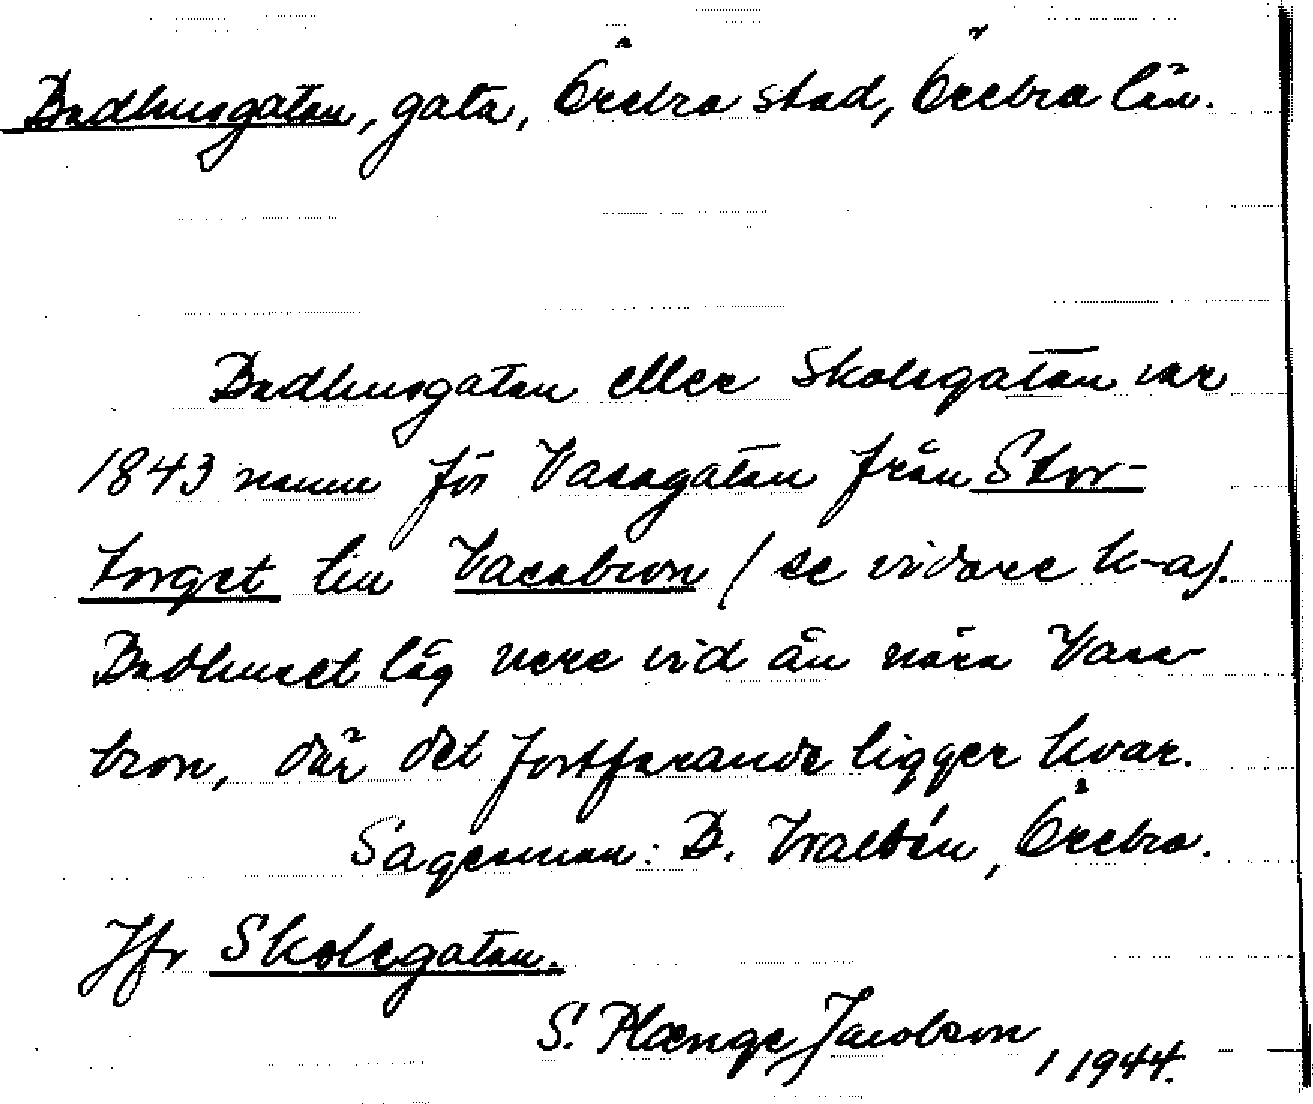 Badhusgatan, gata, Örebro stad, Örebro län.
Badhusgatan eller Skolegatan var
1843 namn för Vasagatan från Stor-
torget till Vasabron (se vidare k-a).
Badhuset låg nere vid ån nära Vasa-
bron, där det fortfarande ligger kvar.
Sagesman: B. Waldén, Örebro.
Jfr Skolegatan.
S. Plænge Jacobson, 1944.